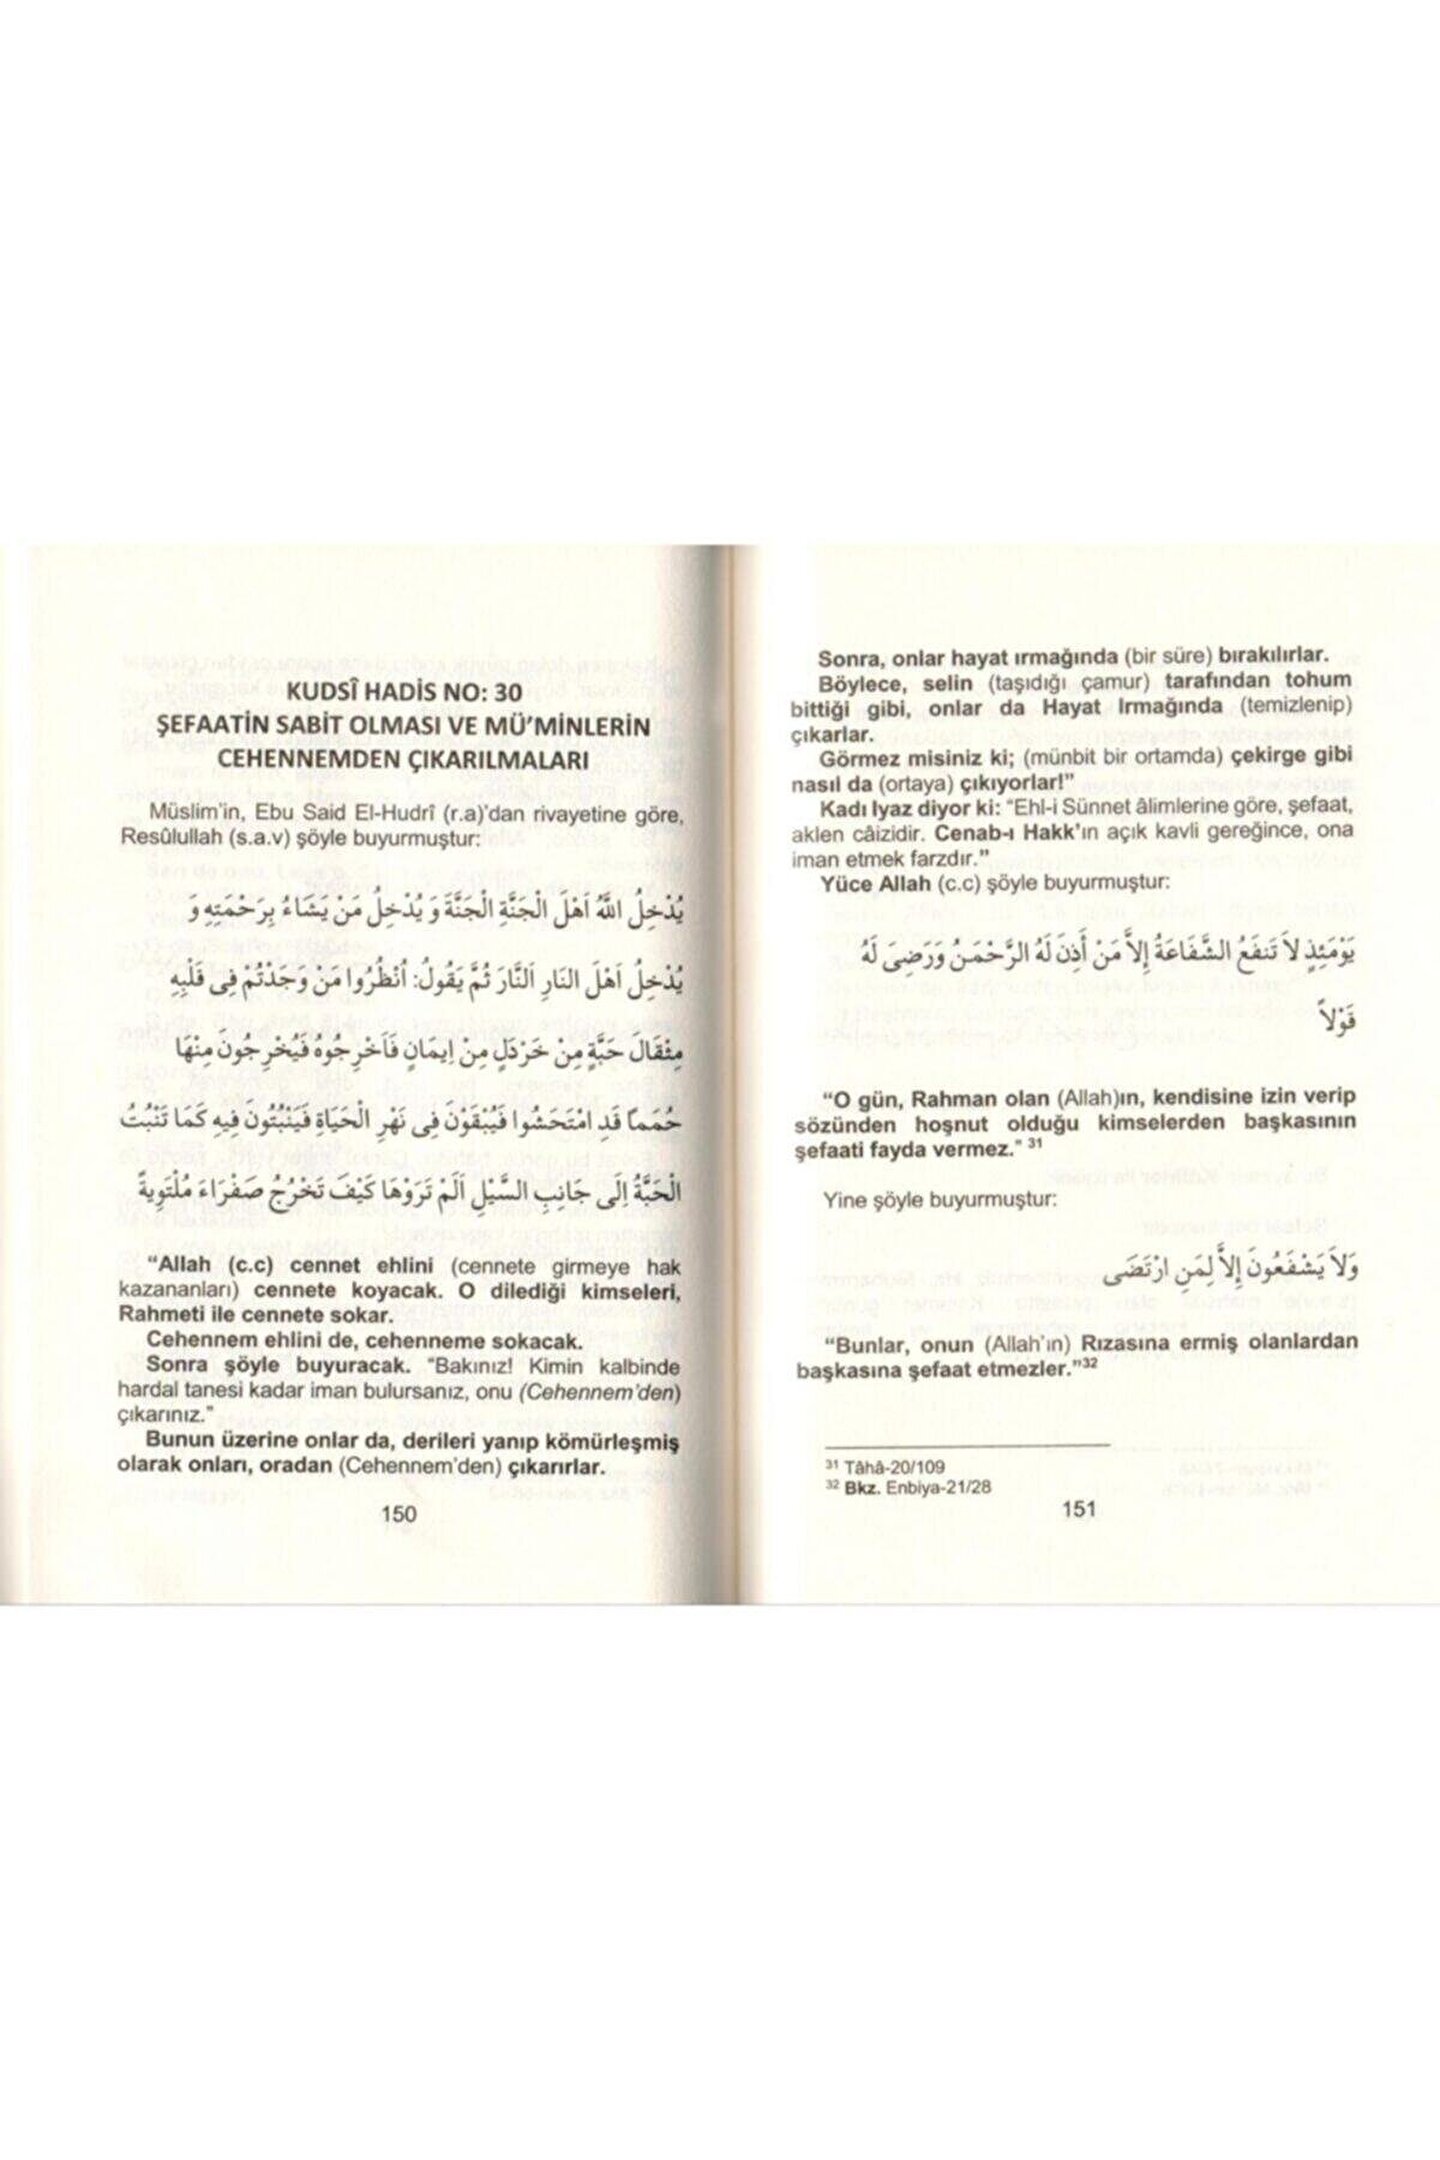 KUDSÎ HADİS NO: 30
ŞEFAATİN SABİT OLMASI VE MÜ'MİNLERİN
CEHENNEMDEN ÇIKARILMALARI
Müslim'in, Ebu Said El-Hudrî (r.a)'dan rivayetine göre,
Resûlullah (s.a.v) şöyle buyurmuştur:
يُدْخِلُ اللّٰهُ اَهْلَ الْجَنَّةِ الْجَنَّةَ وَ يُدْخِلُ مَنْ يَشَاءُ بِرَحْمَتِهِ وَ
يُدْخِلُ اَهْلَ النَارِ اَلنَّارَ ثُمَّ يَقُولُ: اُنْظُرُوا مَنْ وَجَدْتُمْ فِى قَلْبِهِ
مِثْقَالَ حَبَّةٍ مِنْ خَرْدَلٍ مِنْ اِيمَانٍ فَاَخْرِجُوهُ فَيُخْرِجُونَ مِنْهَا
حُمَمًا قَدِ امْتَحَشُوا فَيُبْقَوْنَ فِى نَهْرِ الْحَيَاةِ فَيَنْبُتُونَ فِيهِ كَمَا تَنْبُتُ
الْحَبَّةُ اِلَى جَانِبِ السَّيْلِ اَلَمْ تَرَوْهَا كَيْفَ تَخْرُجُ صَفْرَاءَ مُلْتَوِيةً
"Allah (c.c) cennet ehlini (cennete girmeye hak
kazananları) cennete koyacak. O dilediği kimseleri,
Rahmeti ile cennete sokar.
Cehennem ehlini de, cehenneme sokacak.
Sonra şöyle buyuracak. "Bakınız! Kimin kalbinde
hardal tanesi kadar iman bulursanız, onu (Cehennem'den)
çıkarınız."
Bunun üzerine onlar da, derileri yanıp kömürleşmiş
olarak onları, oradan (Cehennem'den) çıkarırlar.
150
Sonra, onlar hayat ırmağında (bir süre) bırakılırlar.
Böylece, selin (taşıdığı çamur) tarafından tohum
bittiği gibi, onlar da Hayat Irmağında (temizlenip)
çıkarlar.
Görmez misiniz ki; (münbit bir ortamda) çekirge gibi
nasıl da (ortaya) çıkıyorlar!"
Kadı Iyaz diyor ki: "Ehl-i Sünnet âlimlerine göre, şefaat,
aklen câizidir. Cenab-ı Hakk'ın açık kavli gereğince, ona
iman etmek farzdır."
Yüce Allah (c.c) şöyle buyurmuştur:
يَوْمَئِذٍ لاَ تَنفَعُ الشَّفَاعَةُ إِلاَّ مَنْ أَذِنَ لَهُ الرَّحْمَنُ وَرَضِىَ لَهُ
قَوْلاً
"O gün, Rahman olan (Allah)ın, kendisine izin verip
sözünden hoşnut olduğu kimselerden başkasının
şefaati fayda vermez." 31
Yine şöyle buyurmuştur:
وَلاَ يَشْفَعُونَ إِلاَّ لِمَنِ ارْتَضَى
"Bunlar, onun (Allah'ın) Rızasına ermiş olanlardan
başkasına şefaat etmezler."32
31 Tâhâ-20/109
32 Bkz. Enbiya-21/28
151